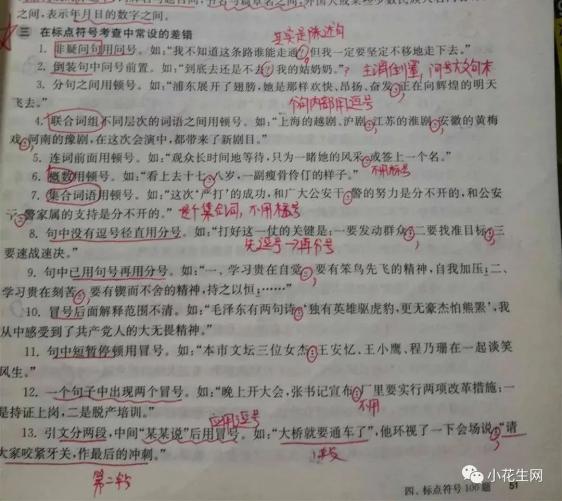 之间,表示年月日的数字之间。
三 在标点符号考查中常设的差错
其实是陈述句
1. 非疑问句用问号。如:“我不知道这条路谁能走通?但我一定要坚定不移地走下去。”
2. 倒装句中问号前置。如:“到底去还是不去?我的姑奶奶。”
? 主谓倒置,问号放句末
3. 分句之间用顿号。如:“浦东展开了翅膀,她是那样欢快、昂扬、奋发、正在向辉煌的明天
飞去。”
个句内部用逗号
4. 联合词组不同层次的词语之间用顿号。如:“上海的越剧、沪剧、江苏的淮剧、安徽的黄梅
戏、河南的豫剧,在这次会演中,都带来了新剧目。”
5. 连词前面用顿号。如:“观众长时间地等待,只为一睹她的风采、或签上一个名。”
6. 概数用顿号。如:“看上去十七、八岁,一副瘦骨伶仃的样子。”
不用顿号
7. 集合词语用顿号。如:“这次‘严打’的成功,和广大公安干、警的努力是分不开的,和公安
干、警家属的支持是分不开的。”
是个集合词,不用顿号
8. 句中没有逗号径直用分号。如:“打好这一仗的关键是:一要发动群众;二要找准目标;三
要速战速决。”
先逗号→再分号
9. 句中已用句号再用分号。如:“一、学习贵在自觉。要有笨鸟先飞的精神,自我加压;二、
学习贵在刻苦。要有锲而不舍的精神,持之以恒;……”
10. 冒号后面解释范围不清。如:“毛泽东有两句诗:‘独有英雄驱虎豹,更无豪杰怕熊罴’,我
从中感受到了共产党人的大无畏精神。”
11. 句中短暂停顿用冒号。如:“本市文坛三位女杰:王安忆、王小鹰、程乃珊在一起谈笑
风生。”
12. 一个句子中出现两个冒号。如:“晚上开大会,张书记宣布:厂里要实行两项改革措施:一
是持证上岗,二是脱产培训。”
不用
应用逗号
13. 引文分两段,中间“某某说”后用冒号。如:“大桥就要通车了”,他环视了一下会场说:“请
大家咬紧牙关,作最后的冲刺。”
第二句
四、标点符号100题 51
小花生网